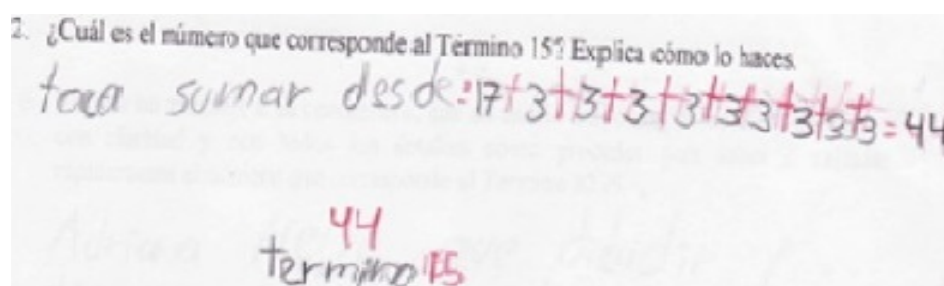 2. ¿Cuál es el número que corresponde al Término 15? Explica cómo lo haces.
toca sumar desde:17+3+3+3+3+3+3+3+3+3=44
44
termino 15